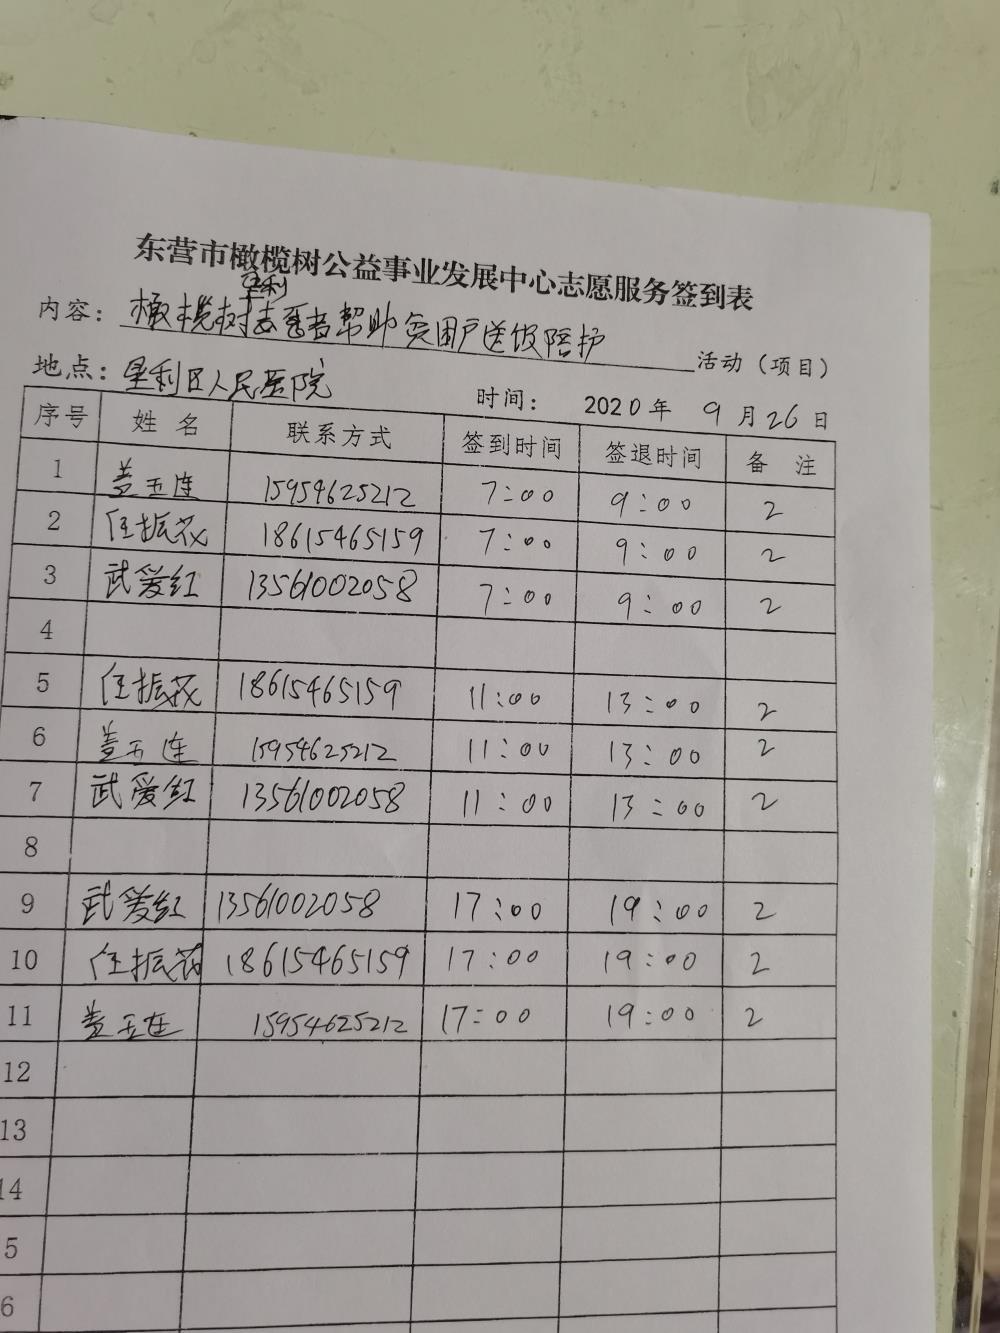 东营市橄榄树公益事业发展中心志愿服务签到表
垦利
内容：橄榄树志愿者帮助贫困户送饭陪护活动（项目）
地点：垦利区人民医院 时间： 2020年 9月26日
序号 姓名 联系方式 签到时间 签退时间 备注
1 盖玉连 15954625212 7:00 9:00 2
2 任振花 18615465159 7:00 9:00 2
3 武爱红 13561002058 7:00 9:00 2
4
5 任振花 18615465159 11:00 13:00 2
6 盖玉连 15954625212 11:00 13:00 2
7 武爱红 13561002058 11:00 13:00 2
8
9 武爱红 13561002058 17:00 19:00 2
10 任振花 18615465159 17:00 19:00 2
11 盖玉连 15954625212 17:00 19:00 2
12
13
14
5
6